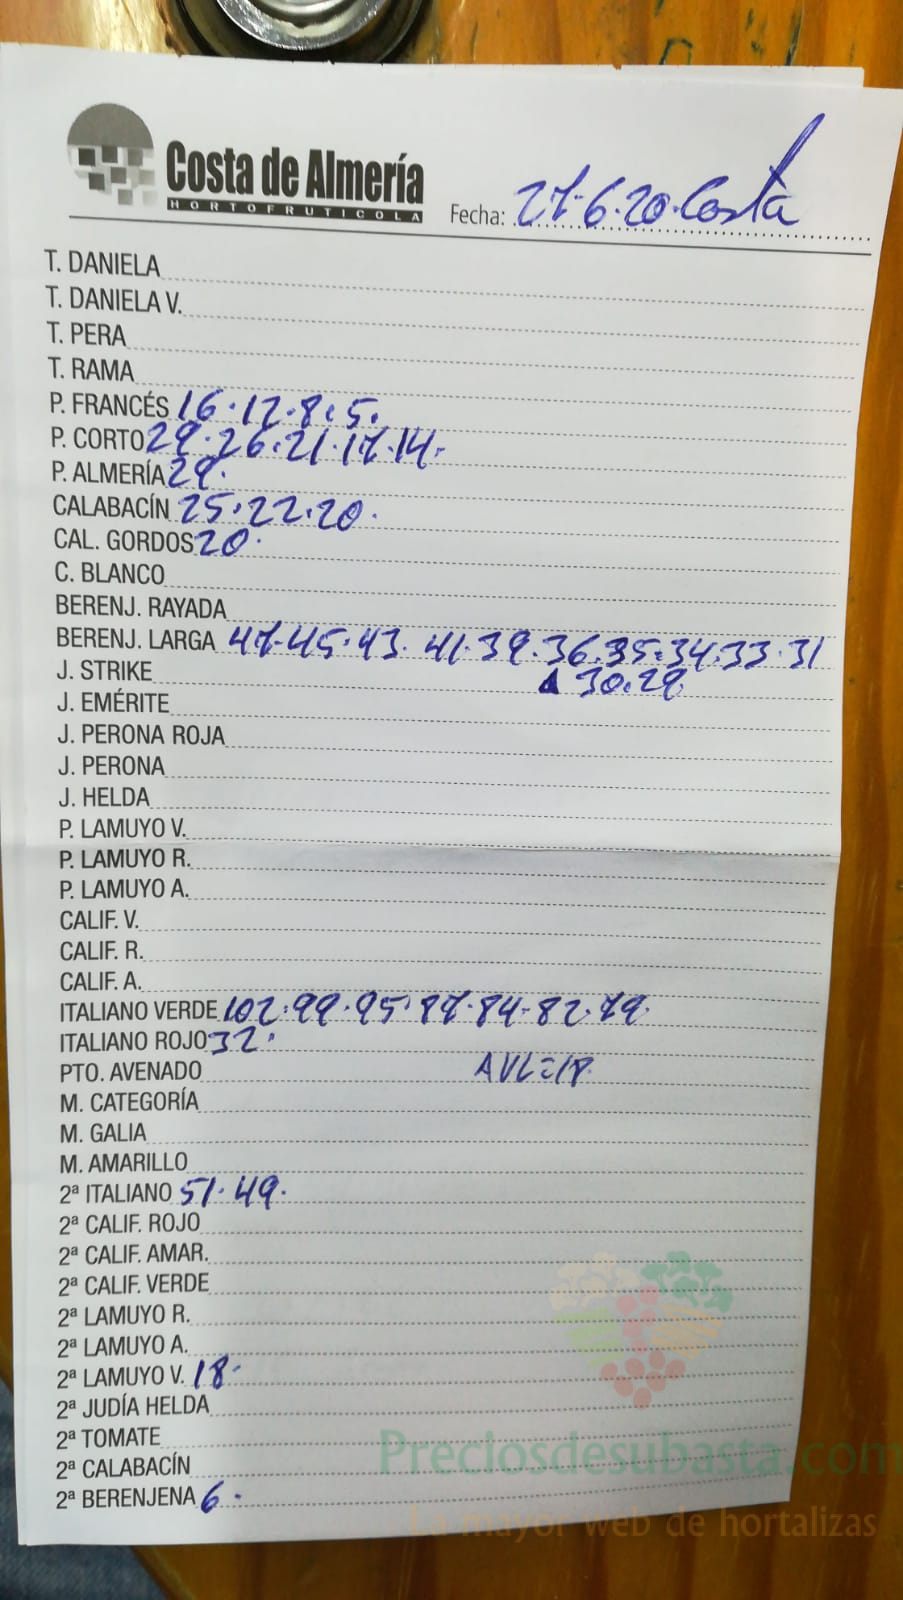 Costa de Almería
HORTOFRUTICOLA
Fecha: 27.6.20. Costa
T. DANIELA
T. DANIELA V.
T. PERA
T. RAMA
P. FRANCÉS 16.12.8.5.
P. CORTO 29.26.21.17.14.
P. ALMERÍA 29.
CALABACÍN 25.22.20.
CAL. GORDOS 20.
C. BLANCO
BERENJ. RAYADA
BERENJ. LARGA 47.45.43.41.39.36.35.34.33.31
30.29.
J. STRIKE
J. EMÉRITE
J. PERONA ROJA
J. PERONA
J. HELDA
P. LAMUYO V.
P. LAMUYO R.
P. LAMUYO A.
CALIF. V.
CALIF. R.
CALIF. A.
ITALIANO VERDE 102.99.95.87.84.82.79.
ITALIANO ROJO 32.
PTO. AVENADO AVL=18.
M. CATEGORÍA
M. GALIA
M. AMARILLO
2ª ITALIANO 51.49.
2ª CALIF. ROJO
2ª CALIF. AMAR.
2ª CALIF. VERDE
2ª LAMUYO R.
2ª LAMUYO A.
2ª LAMUYO V. 18.
2ª JUDÍA HELDA
2ª TOMATE
2ª CALABACÍN
2ª BERENJENA 6.
Preciosdesubasta.com
La mayor web de hortalizas